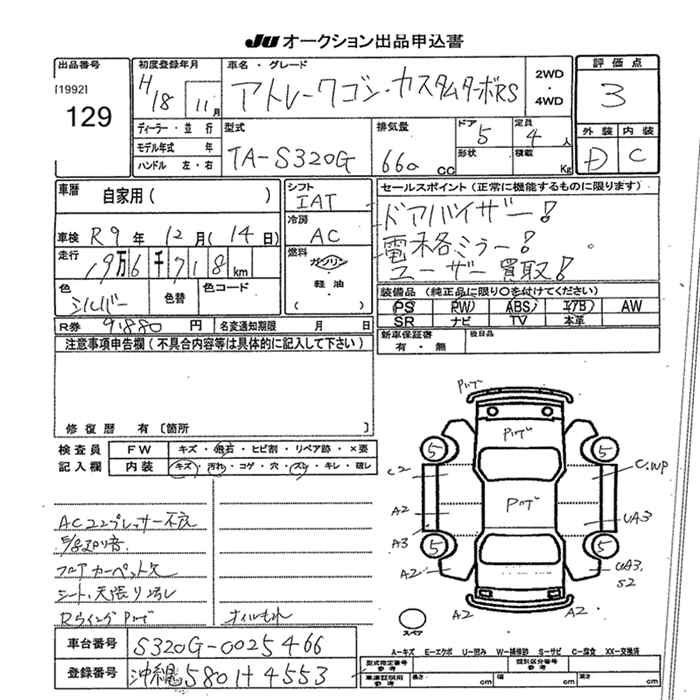 JU オークション出品申込書
出品番号
[1992]
129
初度登録年月
H18 11月
車名・グレード
アトレーワゴン・カスタムターボRS
2WD・4WD
評価点
3
外装 内装
D C
ディーラー・並行
モデル年式 年
ハンドル 左・右
型式
TA-S320G
排気量
660 CC
ドア 5
形状
定員 4人
積載 Kg
車歴 自家用( )
車検 R9年 12月(14日)
走行 19万6千718km
色 シルバー 色替 色コード
シフト
IAT
冷房
AC
燃料
ガソリン・軽油・
( )
セールスポイント(正常に機能するものに限ります)
ドアバイザー!
電格ミラー!
ユーザー買取!
装備品 (純正品に限り○を付けてください)
PS PW ABS エアB AW
SR ナビ TV 本革
R券 9,880円 名変通知期限 月 日
新車保証書
有・無
後日品
注意事項申告欄(不具合内容等は具体的に記入して下さい)
修復歴 有〔箇所 〕
検査員
記入欄
FW キズ・飛石・ヒビ割・リペア跡・×要
内装 キズ・汚れ・コゲ・穴・スレ・キレ・破レ
ACコンプレッサー不良
フロアカーペット欠
オイルもれ
車台番号 S320G-0025466
登録番号 沖縄580 H4553
Pサブ
Pサブ
Pサブ
5 5
5 5
C2 C.WP
A2 UA3
A3
A2 UA3
S2
A2 A2
スペア
A-キズ E-エクボ U-凹み W-補修跡 S-サビ C-腐食 XX-交換済
型式指定番号
参考
類別区分番号
参考
車庫証明用
参考
長さ cm 幅 cm 高さ cm